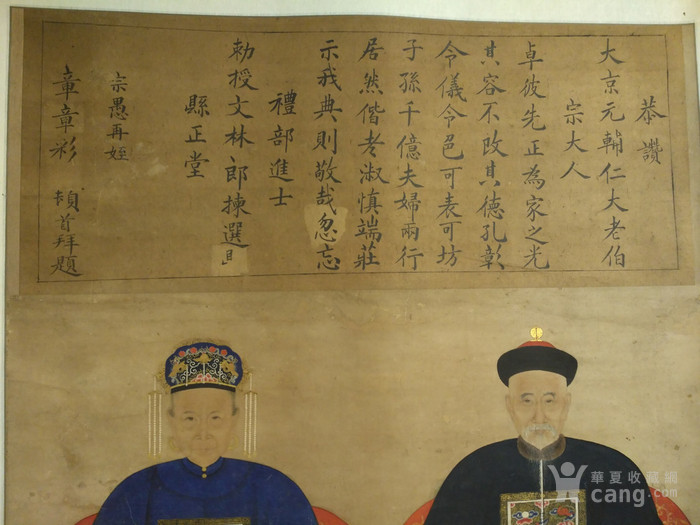 恭讚
大京元輔仁大老伯
宗大人
卓彼先正為家之光
其容不改其德孔彰
令儀令色可表可坊
子孫千億夫婦兩行
居然偕老淑慎端莊
示我典則敬哉忽忘
禮部進士
勅授文林郎揀選
縣正堂
宗愚再姪
章章彩 頓首拜題
華夏收藏網
cang.com